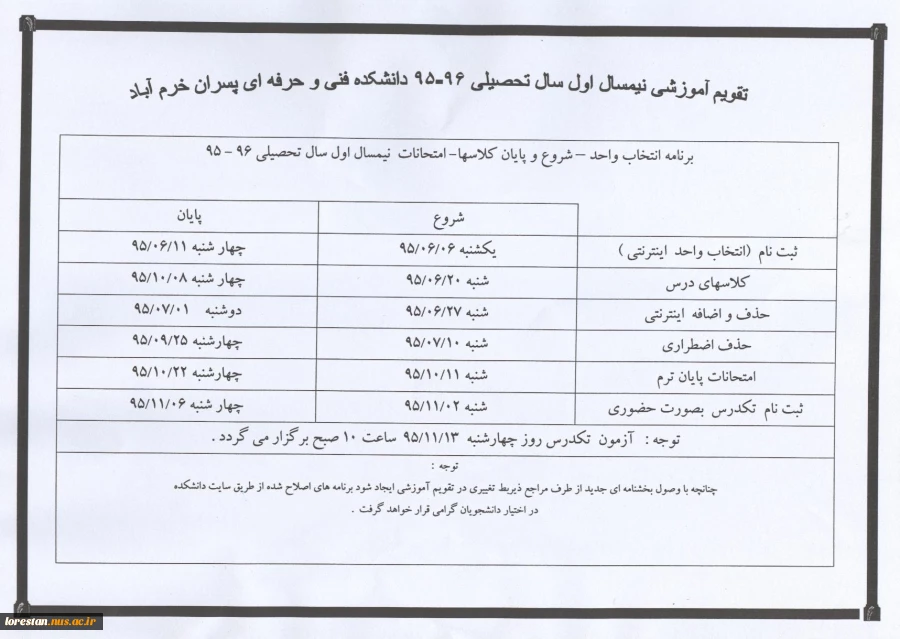 تقویم آموزشی نیمسال اول سال تحصیلی ۹۶-۹۵ دانشکده فنی و حرفه ای پسران خرم آباد
برنامه انتخاب واحد – شروع و پایان کلاسها- امتحانات نیمسال اول سال تحصیلی ۹۶ - ۹۵
شروع پایان
ثبت نام (انتخاب واحد اینترنتی) یکشنبه ۹۵/۰۶/۰۶ چهار شنبه ۹۵/۰۶/۱۱
کلاسهای درس شنبه ۹۵/۰۶/۲۰ چهار شنبه ۹۵/۱۰/۰۸
حذف و اضافه اینترنتی شنبه ۹۵/۰۶/۲۷ دوشنبه ۹۵/۰۷/۰۱
حذف اضطراری شنبه ۹۵/۰۷/۱۰ چهارشنبه ۹۵/۰۹/۲۵
امتحانات پایان ترم شنبه ۹۵/۱۰/۱۱ چهارشنبه ۹۵/۱۰/۲۲
ثبت نام تکدرس بصورت حضوری شنبه ۹۵/۱۱/۰۲ چهار شنبه ۹۵/۱۱/۰۶
توجه : آزمون تکدرس روز چهارشنبه ۹۵/۱۱/۱۳ ساعت ۱۰ صبح برگزار می گردد .
توجه :
چنانچه با وصول بخشنامه ای جدید از طرف مراجع ذیربط تغییری در تقویم آموزشی ایجاد شود برنامه های اصلاح شده از طریق سایت دانشکده
در اختیار دانشجویان گرامی قرار خواهد گرفت .
lorestan.nus.ac.ir